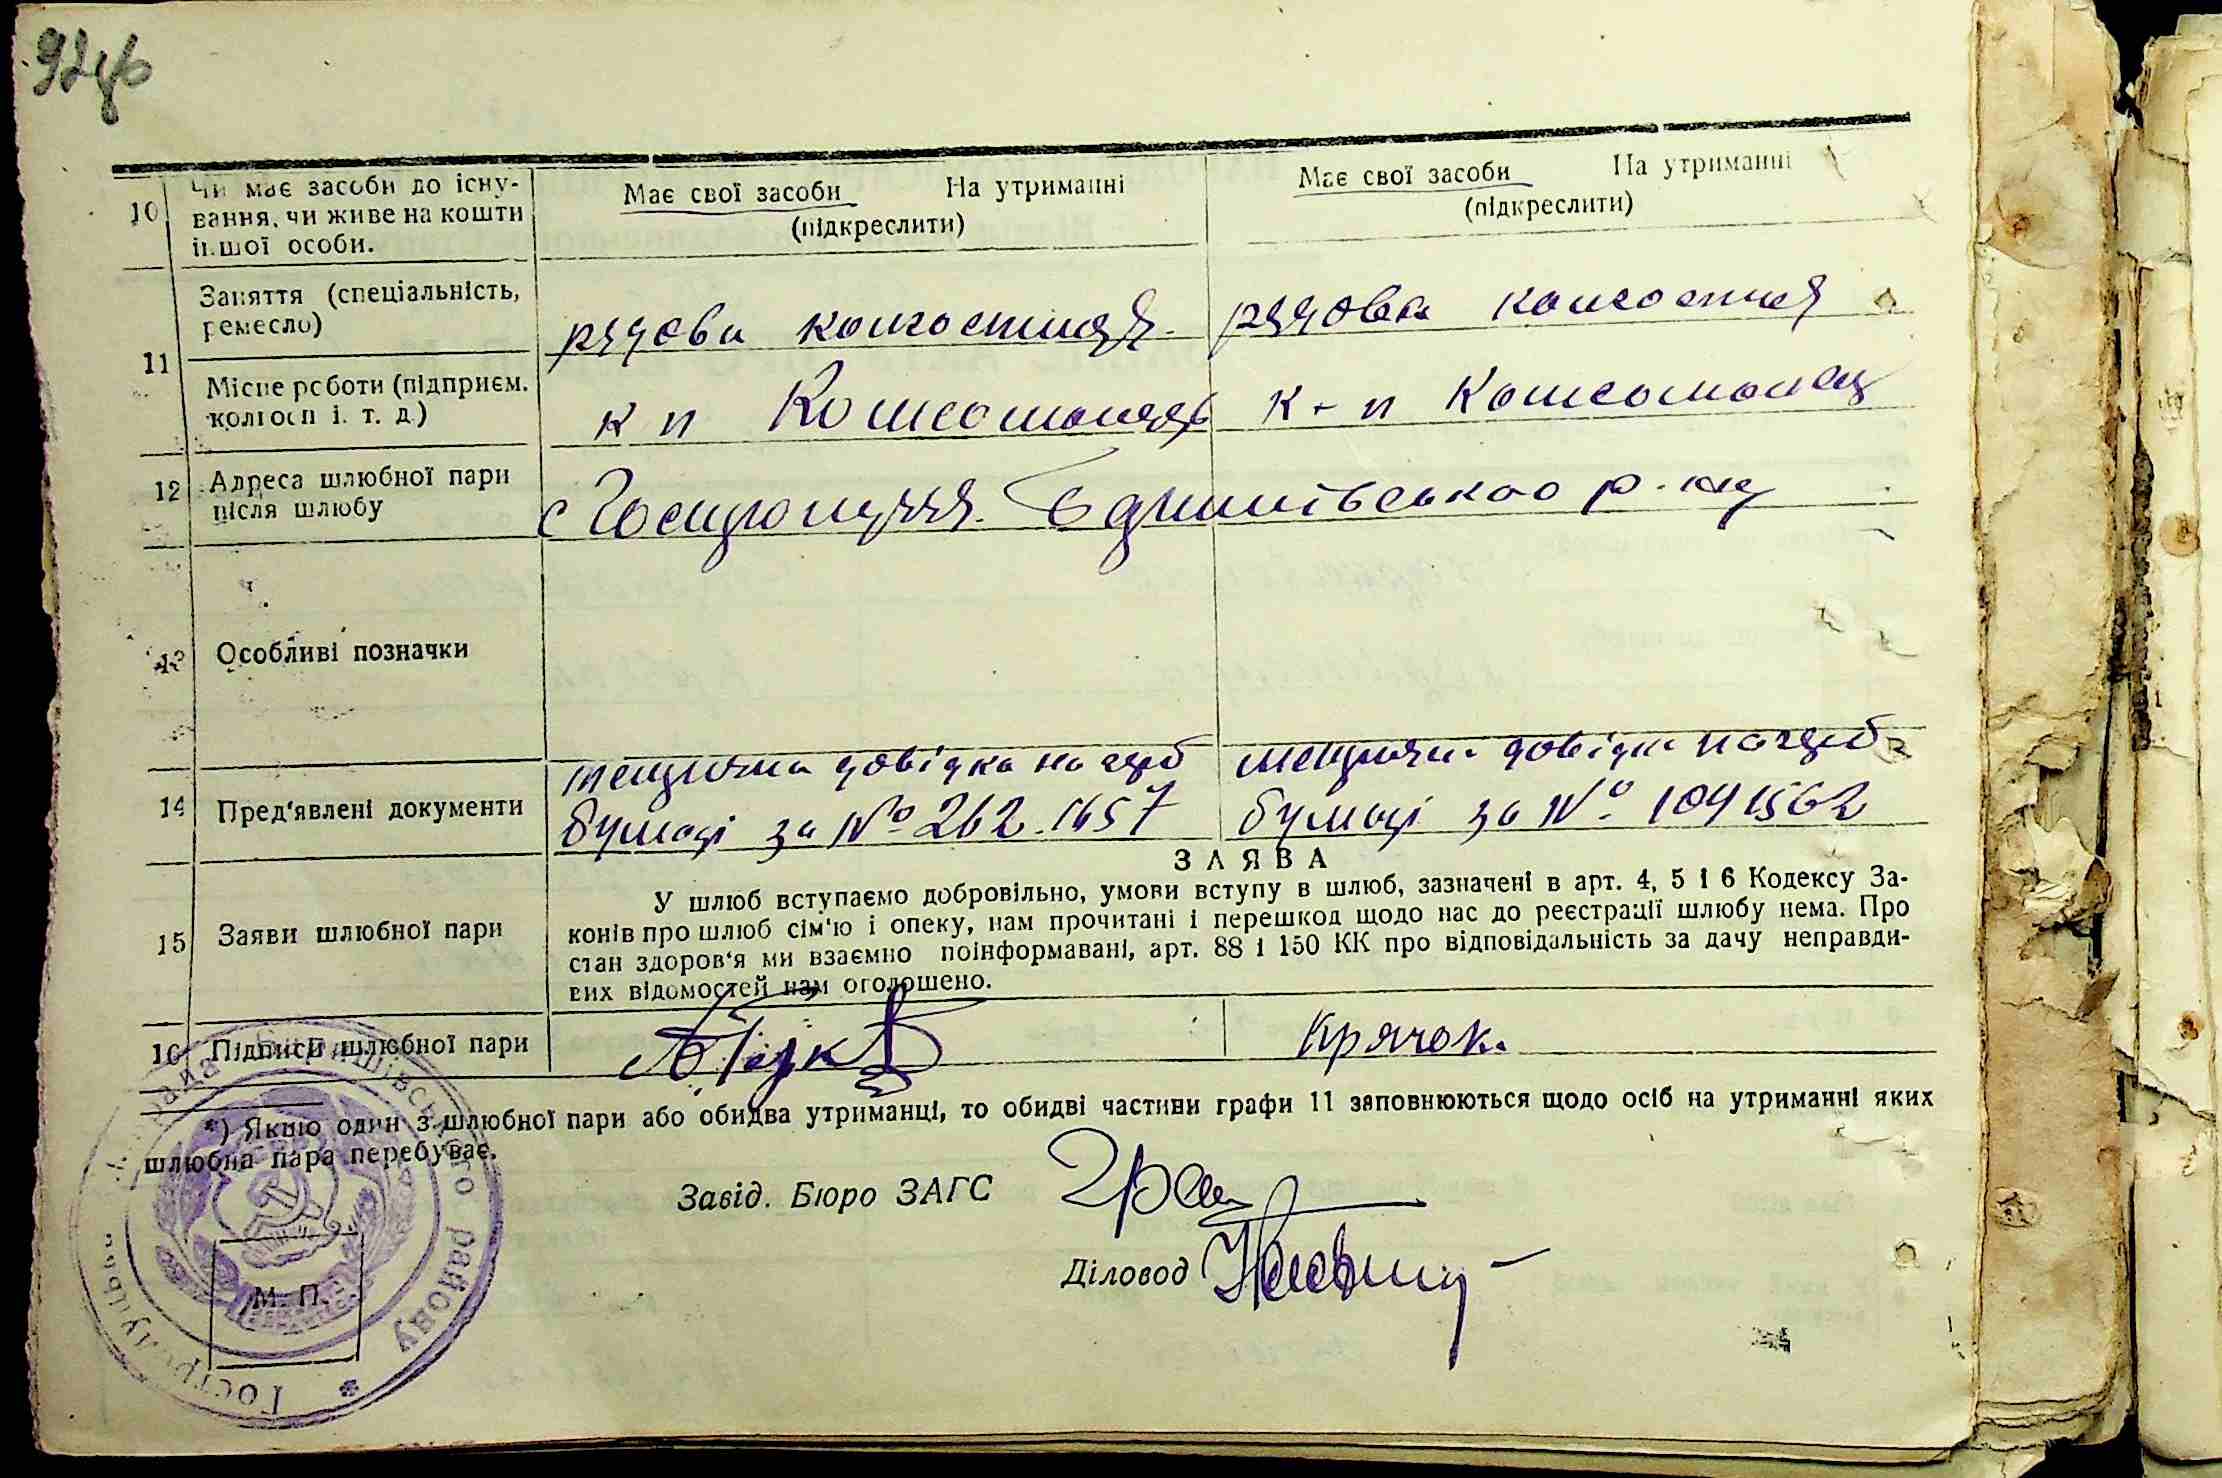 92зв
10 Чи має засоби до існу- Має свої засоби На утриманні Має свої засоби На утриманні
вання, чи живе на кошти (підкреслити) (підкреслити)
іншої особи.
11 Заняття (спеціальність,
ремесло) рядова рядова
Місце роботи (підприєм. к п Комсомолець к-п Комсомолець
колгосп і. т. д.)
12 Адреса шлюбної пари с Гостролуччя Баришівського р-ну
після шлюбу
13 Особливі позначки
14 Пред'явлені документи довідка на довідка на
бумазі за № 262.1657 бумазі за №. 1041562
ЗАЯВА
15 Заяви шлюбної пари
У шлюб вступаємо добровільно, умови вступу в шлюб, зазначені в арт. 4, 5 і 6 Кодексу За-
конів про шлюб сім'ю і опеку, нам прочитані і перешкод щодо нас до реєстрації шлюбу нема. Про
стан здоров'я ми взаємно поінформавані, арт. 88 і 150 КК про відповідальність за дачу неправди-
вих відомостей нам оголошено.
16 Підписи шлюбної пари Крячок.
*) Якщо один з шлюбної пари або обидва утриманці, то обидві частини графи 11 заповнюються щодо осіб на утриманні яких
шлюбна пара перебуває.
Завід. Бюро ЗАГС
Діловод
М. П.
рада Баришівського району * Гостролуцька